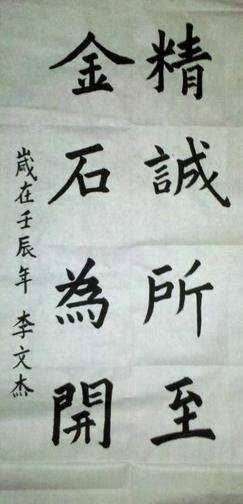 精誠所至
金石為開
歲在壬辰年 李文杰